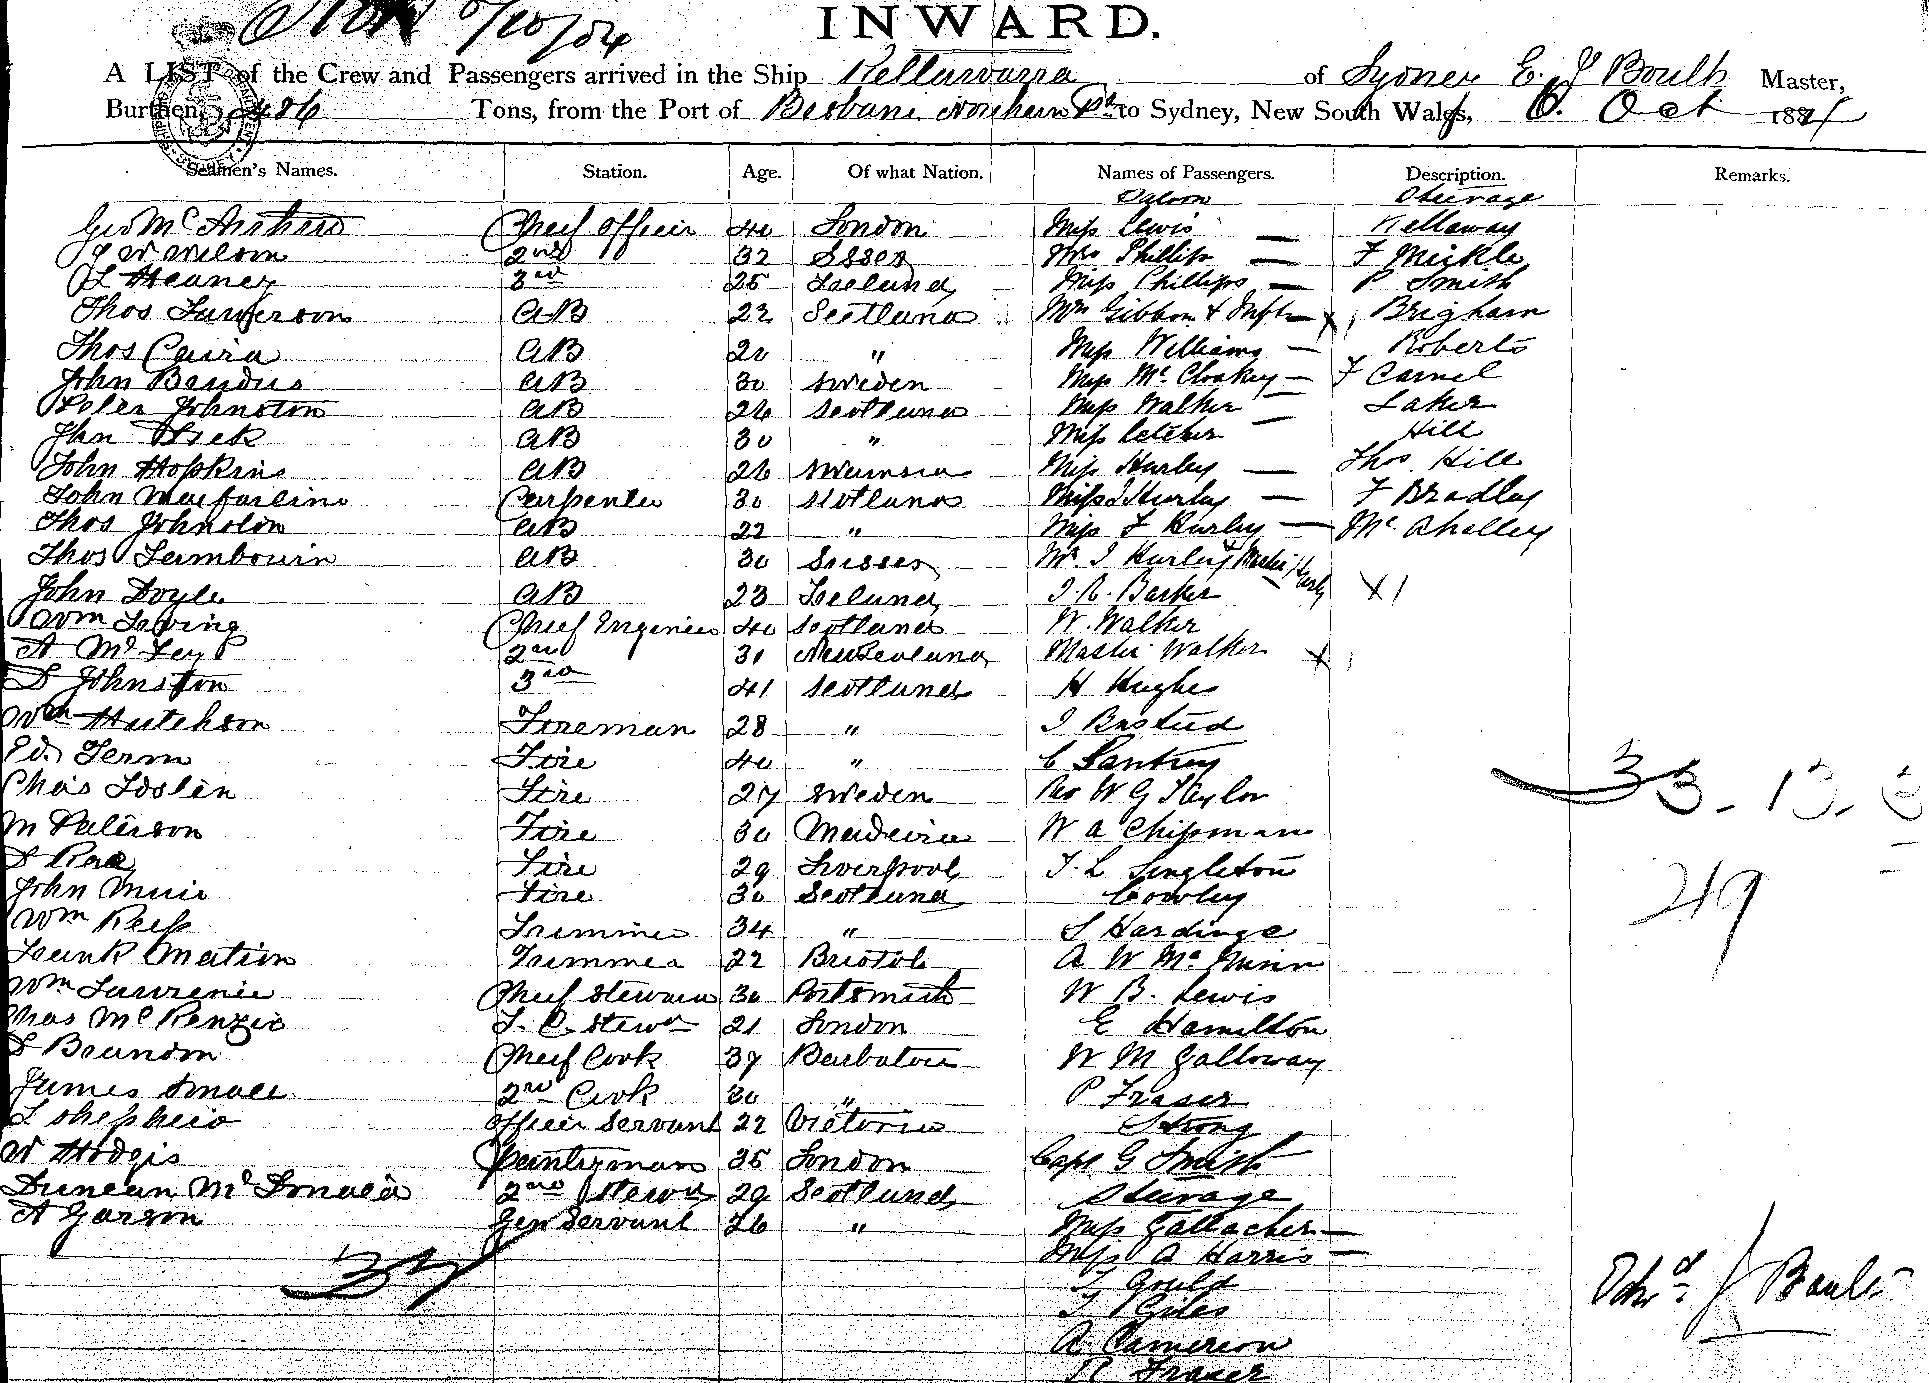 INWARD.
A LIST of the Crew and Passengers arrived in the Ship Kellawarra of Sydney E. J Boult Master,
Burthen, 486 Tons, from the Port of Brisbane Northern Pts to Sydney, New South Wales, 6. Oct 1884
Seamen's Names. Station. Age. Of what Nation. Names of Passengers. Description. Remarks.
Saloon Steerage
Geo Mc Arthur Chief Officer 40 London Miss Lewis — Kellaway
J W Wilson 2nd 32 Essex Mrs Phillips — F Mickle
3rd 25 Ireland Miss Phillips — P Smith
Thos AB 22 Scotland Mrs Gibbon & Inft — x 1 Brigham
Thos AB 20 " Miss Williams — Roberts
John AB 30 Sweden Miss Mc Cloakey — F Carnel
Peter Johnston AB 26 Scotland Miss Walker — Laker
Jhn AB 30 " Miss — Hill
John Hopkins AB 26 Swansea Miss Hurley — Thos Hill
John Macfarline Carpenter 30 Scotland Miss J Hurley — F Bradley
Thos Johnston AB 22 " Miss F Hurley — Mc
Thos Lambourn AB 30 Sussex Mr J Hurley & Master Hurly
John Doyle AB 23 Ireland J. R. Barker X 1
Wm Irving Chief Engineer 40 Scotland W. Walker
A Mc 2nd 31 New Zealand Master Walker x 1
D Johnston 3rd 41 Scotland H Hughes
Wm Hutchson Foreman 28 " J
Ed. Fire 40 " C
Chas Joslin Fire 27 Sweden W G Taylor
M Paterson Fire 30 Madeira W A Chipman
D Rae Fire 29 Liverpool T. L Singleton
John Muir Fire 30 Scotland Cowley
Wm Trimmer 34 " S Hardinge
Frank Trimmer 22 Bristol A W Mc
Wm Lawrence Chief Steward 30 Portsmith W B. Lewis
Chas Mc Kenzie F. C. Stewd 21 London E Hamilton
Chief Cook 37 Barbatoes W M Galloway
James 2nd Cook 30 " P Fraser
Officer Servant 22 Victoria Strong
W Hodgis Pantryman 35 London Capt G Smith
Duncan Mc Donald 2nd Stewd 29 Scotland Steerage
A Garson Gen Servant 26 " Miss Gallacher —
Miss A Harris —
T Gould
T Giles
A Camerion
R Fraser
33 - 13 -
49
Edwd J Boult